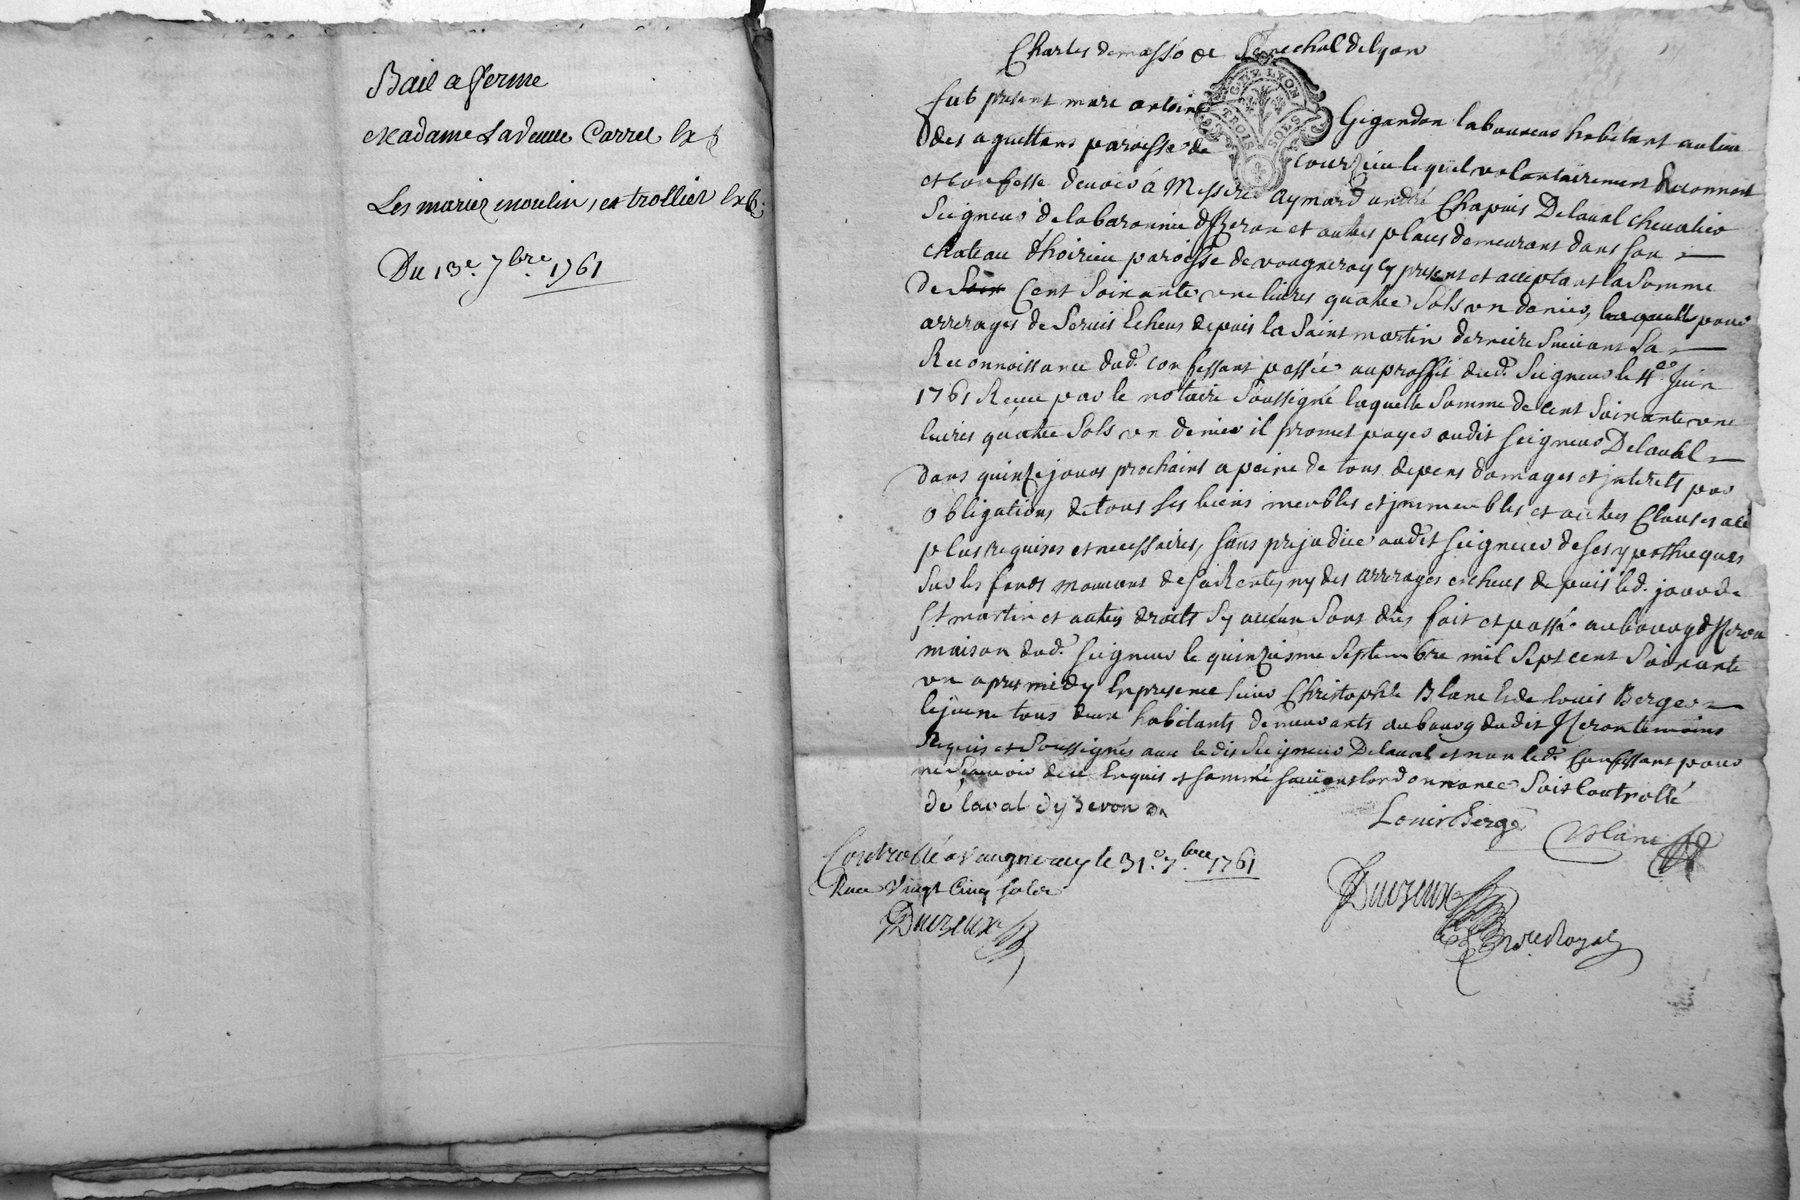 Bail a ferme
Madame La veuve Carret
Les mariez moulin, et trollier
Du 13e. 7bre. 1761
Charles de masso &c Senechal de lyon
fut present marc antoine Gigandon laboureur habitant au lieu
des aguettans paroisse de Courzieu lequel volontairement Reconnoit
et confesse devoir á Messire Aymard andré Chapuis Delaval chevalier
Seigneur de la baronnie d'Izeron et autres places demeurant dans son
chateau d'hoirieu paroisse de vaugneray cy present et acceptant la Somme
De Soix Cent Soixante une livres quatre Sols un denier, laquelle pour
arrerages de Servis Echeus depuis la Saint martin derniere Suivant Sa
Reconnoissance dud. confessant passée au proffit dud. Seigneur le 4e. Juin
1761 Receue par le notaire Soussigné laquelle Somme de cent Soixante une
livres quatre Sols un denier il promet payer audit Seigneur Delaval
dans quinze jours prochains a peine de tous depens domages et jnterets par
obligations de tous ses biens meubles et jmmeubles et autres Clauses a ce
plus requises et necessaires, sans prejudice audit Seigneur de ses ypotheques
Sur les fonds mouvans de sa Rente, ny des arrerages echeus depuis led. jour de
St. martin et autres droits Sy aucun Sont dus fait et passé au bourg d'Izeron
maison dud. Seigneur le quinzieme Septembre mil Sept cent Soixante
un apres midy En presence Sieur Christophle Blanc et de louis Berger
le jeune tous deux habitants demeurants au bourg dudit Izeron temoins
Requis et Soussignés avec ledit Seigneur Delaval et non led. Confessant pour
ne Sçavoir de ce Enquis et sommé suivant lordonnance Soit Controllé
de laval dyzeron
Louis Berge Blanc
Controllé a Vaugneray le 31e. 7bre 1761
Receu Vingt Cinq Sols
Ducreux
Ducreux
Nore Royal
GEN. LYON
TROIS SOLS